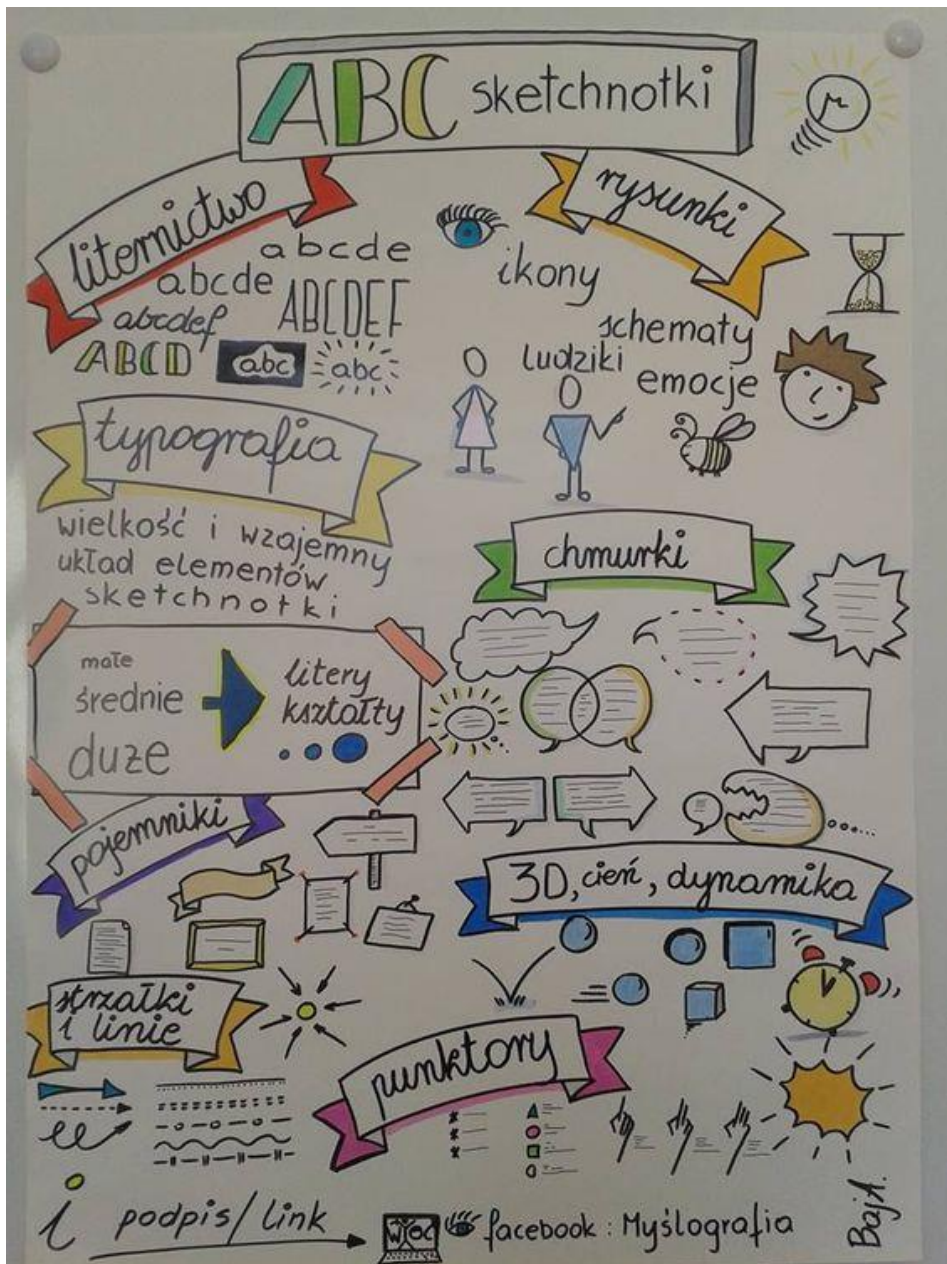 ABC sketchnotki
liternictwo
abcde
abcde
ABCDEF
abcdef
ABCD
abc
abc
rysunki
ikony
schematy
ludziki
emocje
typografia
wielkość i wzajemny
układ elementów
sketchnotki
małe
średnie
duże
litery
kształty
chmurki
pojemniki
3D, cień, dynamika
strzałki
i linie
punktory
i podpis/link
facebook: Myślografia
BajA.